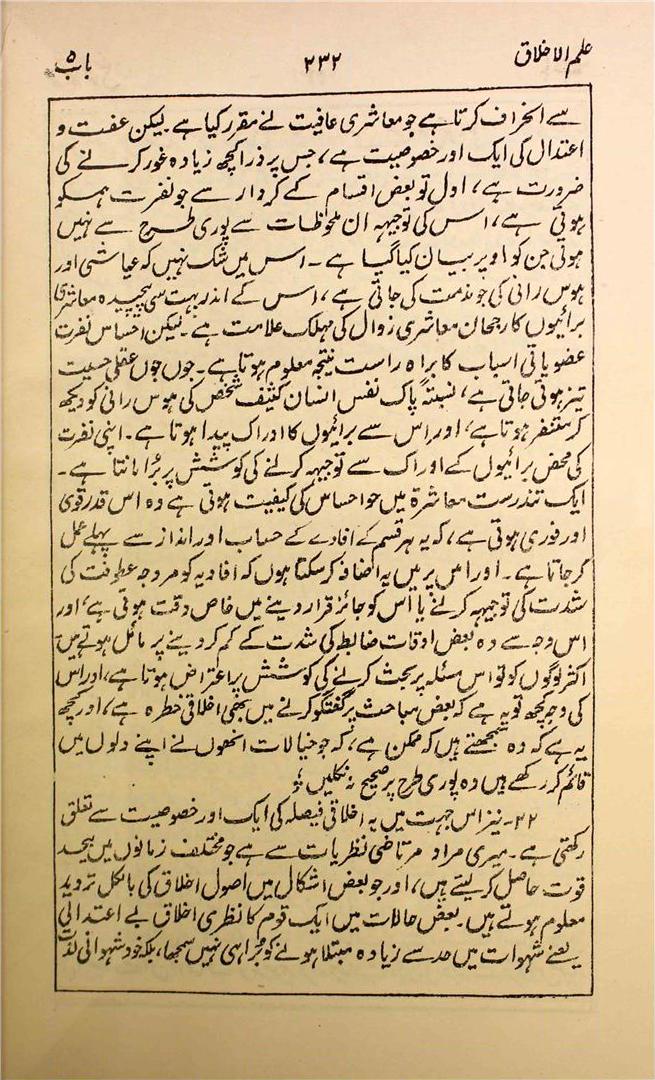 علم الاخلاق ۲۳۲ باب ۵
سے انحراف کرتا ہے جو معاشری عافیت نے مقرر کیا ہے لیکن عفت و
اعتدال کی ایک اور خصوصیت ہے، جس پر ذرا کچھ زیادہ غور کرنے کی
ضرورت ہے، اول تو بعض اقسام کے کردار سے جو نفرت ہمکو
ہوتی ہے، اس کی توجیہہ ان ملحوظات سے پوری طرح سے نہیں
ہوتی جن کو اوپر بیان کیا گیا ہے۔ اس میں شک نہیں کہ عیاشی اور
ہوس رانی کی جو مذمت کی جاتی ہے، اس کے اندر بہت سی پیچیدہ معاشری
برائیوں کا رجحان معاشری زوال کی مہلک علامت ہے۔ لیکن احساس نفرت
عضویاتی اسباب کا براہ راست نتیجہ معلوم ہوتا ہے۔ جوں جوں عقلی حسیت
تیز ہوتی جاتی ہے، نسبتہً پاک نفس انسان کثیف شخص کی ہوس رانی کو دیکھ
کر متنفر ہوتا ہے، اور اس سے برائیوں کا ادراک پیدا ہوتا ہے۔ اپنی نفرت
کی محض برائیوں کے ادراک سے توجیہہ کرنے کی کوشش پر برُا مانتا ہے۔
ایک تندرست معاشرۃ میں جو احساس کی کیفیت ہوتی ہے وہ اس قدر قوی
اور فوری ہوتی ہے، کہ یہ ہر قسم کے افادے کے حساب اور انداز سے پہلے عمل
کر جاتا ہے۔ اور اس پر میں یہ اضافہ کر سکتا ہوں کہ افادیہ کو مروجہ عطوفت کی
شدت کی توجیہہ کرنے یا اس کو جائز قرار دینے میں خاص دقت ہوتی ہے، اور
اس وجہ سے وہ بعض اوقات ضابطہ کی شدت کے کم کر دینے پر مائل ہوتے ہیں
اکثر لوگوں کو تو اس مسئلہ پر بحث کرنے کی کوشش پر اعتراض ہوتا ہے، اور اس
کی وجہ کچھ تو یہ ہے کہ بعض مباحث پر گفتگو کرنے میں بھی اخلاقی خطرہ ہے، اور کچھ
یہ ہے کہ وہ سمجھتے ہیں کہ ممکن ہے، کہ جو خیالات انھوں نے اپنے دلوں میں
قائم کر رکھے ہیں وہ پوری طرح پر صحیح نہ نکلیں؛
۲۲۔ نیز اس جہت میں یہ اخلاقی فیصلہ کی ایک اور خصوصیت سے تعلق
رکھتی ہے۔ میری مراد مرتاضی نظریات سے ہے جو مختلف زمانوں میں بیحد
قوت حاصل کر لیتے ہیں، اور جو بعض اشکال میں اصول اخلاق کی بالکل تردید
معلوم ہوتے ہیں۔ بعض حالات میں ایک قوم کا نظری اخلاق بے اعتدالی
یعنے شہوات میں حد سے زیادہ مبتلا ہونے کو برُا ہی نہیں سمجھا، بلکہ خود شہوانی لذت